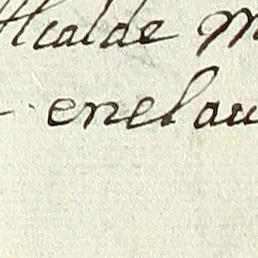 Alcalde m
enel au